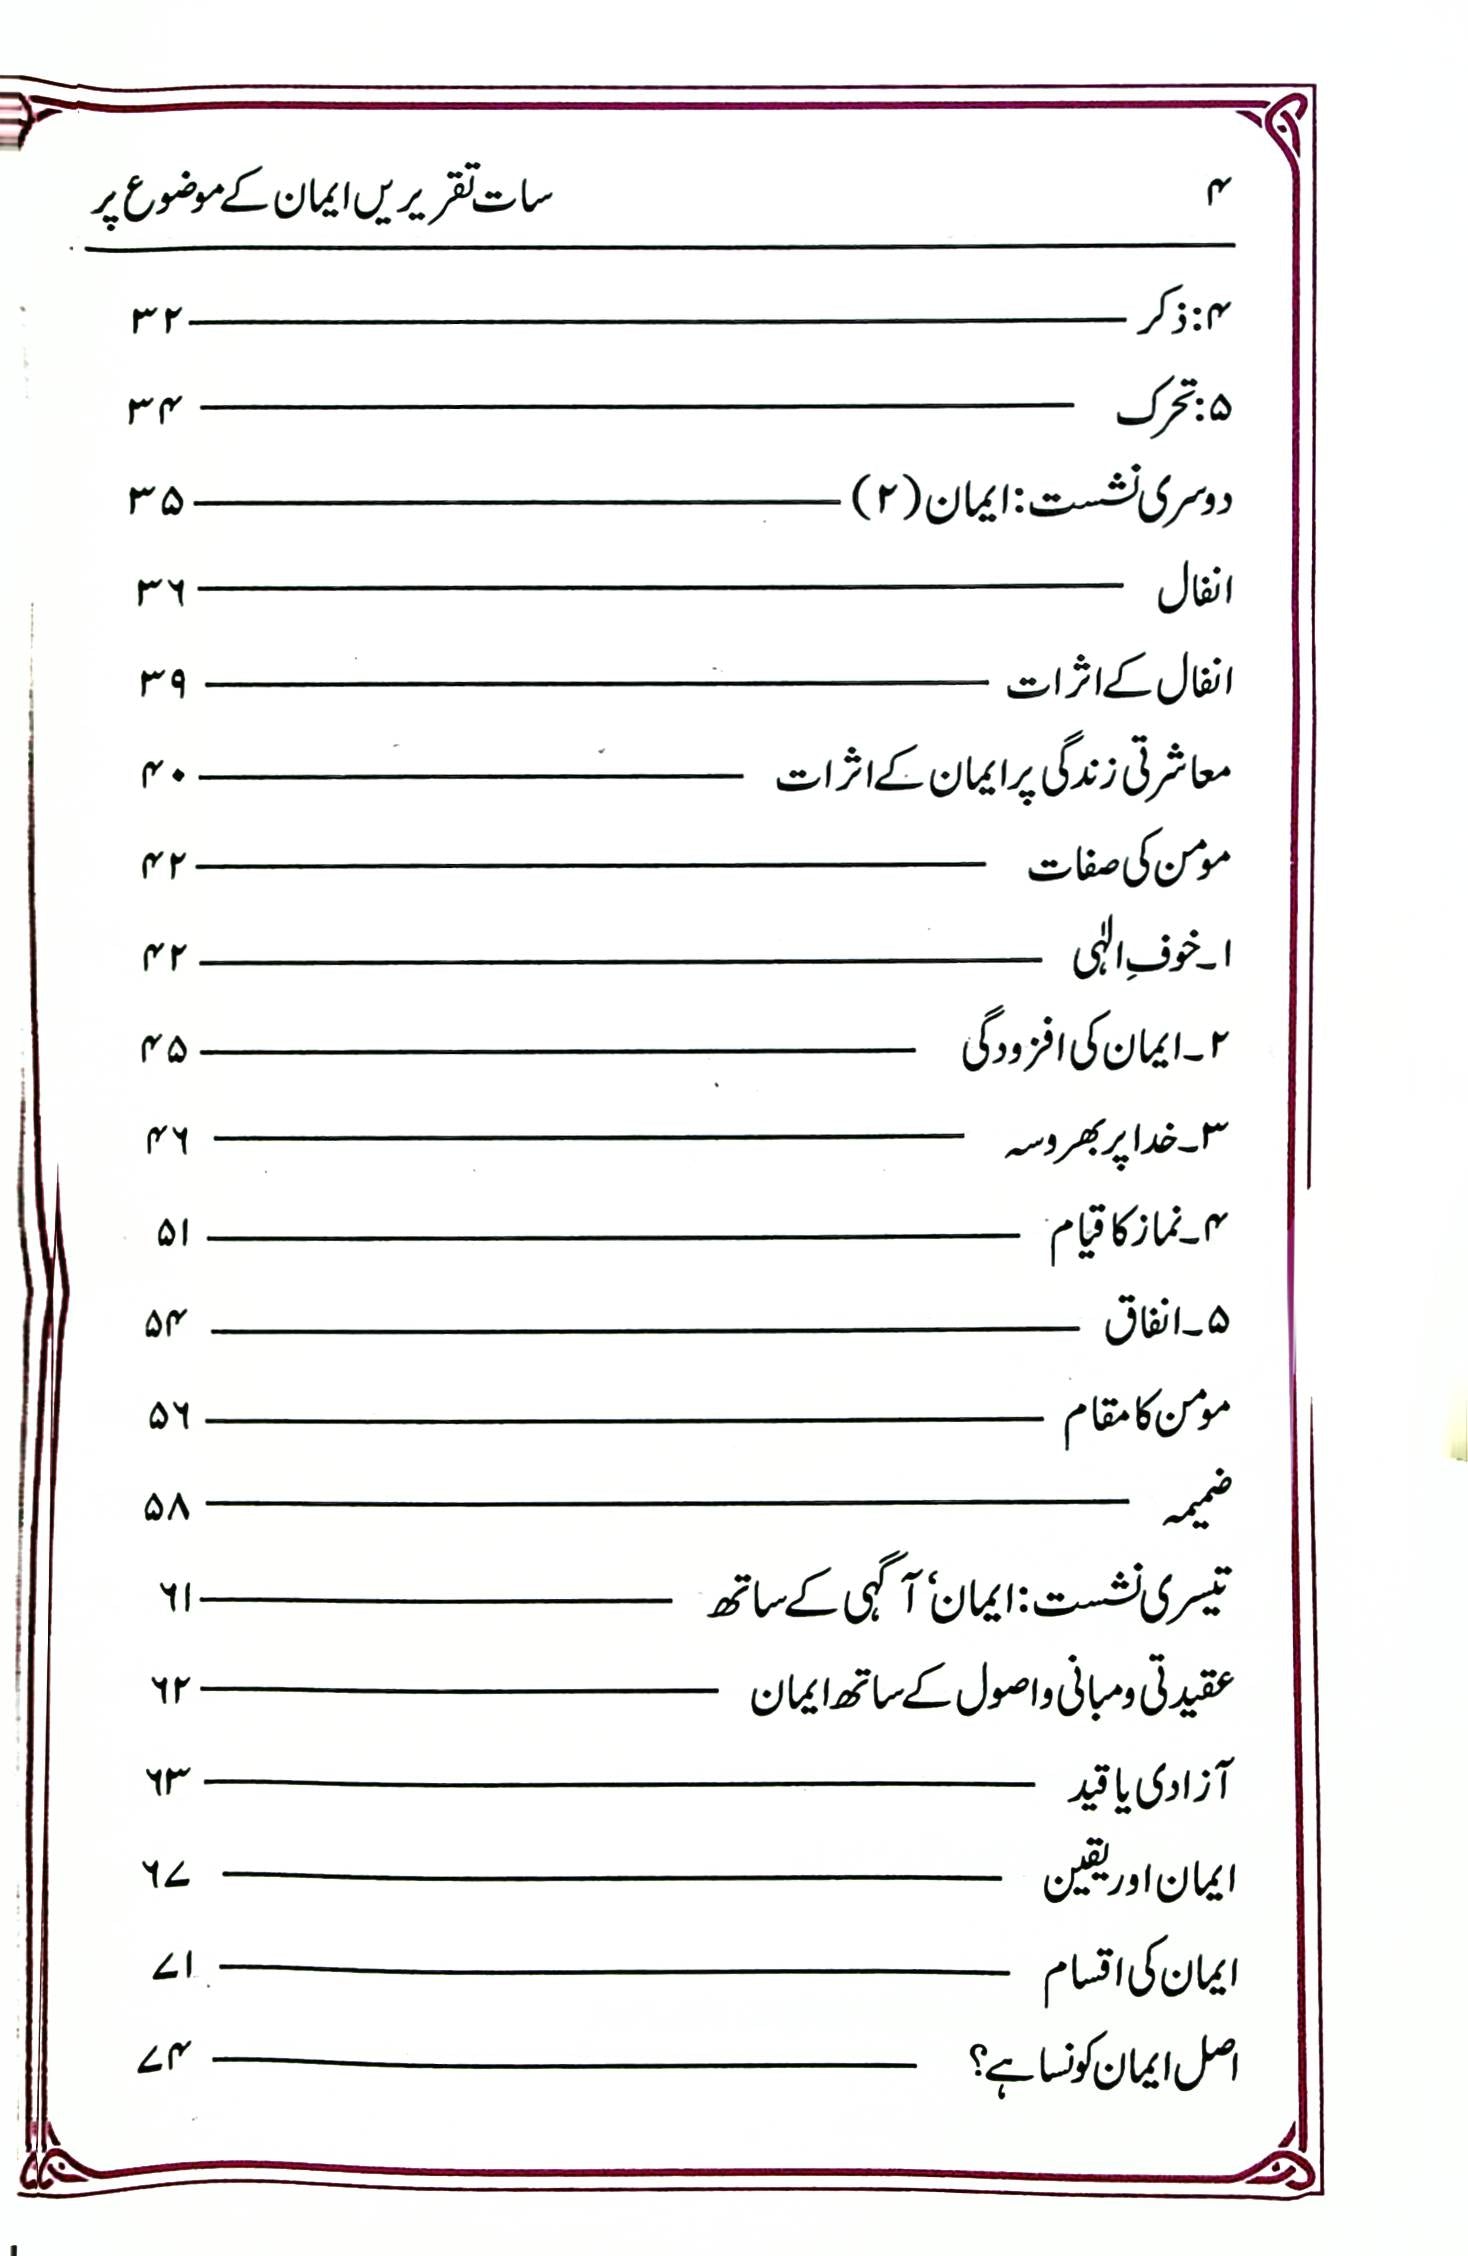 ۴ سات تقریریں ایمان کے موضوع پر
۴: ذکر ۳۲
۵: تحرک ۳۴
دوسری نشست: ایمان (۲) ۳۵
انفال ۳۶
انفال کے اثرات ۳۹
معاشرتی زندگی پر ایمان کے اثرات ۴۰
مومن کی صفات ۴۲
۱۔ خوفِ الٰہی ۴۲
۲۔ ایمان کی افزودگی ۴۵
۳۔ خدا پر بھروسہ ۴۶
۴۔ نماز کا قیام ۵۱
۵۔ انفاق ۵۴
مومن کا مقام ۵۶
ضمیمہ ۵۸
تیسری نشست: ایمان، آگہی کے ساتھ ۶۱
عقیدتی و مبانی و اصول کے ساتھ ایمان ۶۲
آزادی یا قید ۶۳
ایمان اور یقین ۶۷
ایمان کی اقسام ۷۱
اصل ایمان کونسا ہے؟ ۷۴